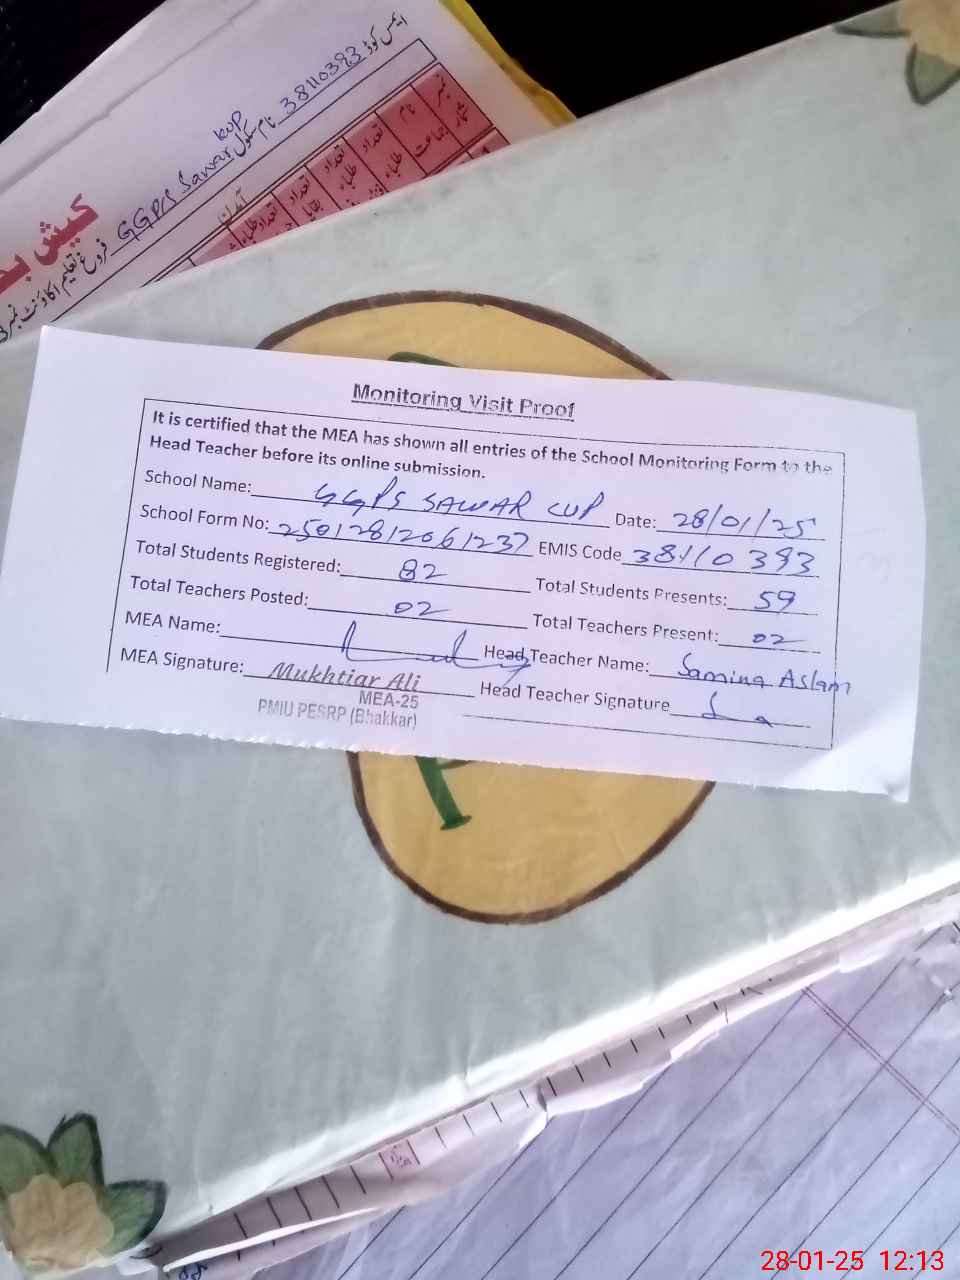 ایمس کوڈ 38110393 نام سکول GGPS Sawar kup
کیش
فروغ تعلیم اکاؤنٹ نمبر
آمدن
نمبر شمار
نام جماعت
تعداد طلباء
تعداد طلباء
تعداد
تعداد طلباء
Monitoring Visit Proof
It is certified that the MEA has shown all entries of the School Monitoring Form to the
Head Teacher before its online submission.
School Name: GGPS SAWAR CUP Date: 28/01/25
School Form No: 25012812061237 EMIS Code 38110393
Total Students Registered: 82 Total Students Presents: 59
Total Teachers Posted: 02 Total Teachers Present: 02
MEA Name: Head Teacher Name: Samina Aslam
MEA Signature: Mukhtiar Ali Head Teacher Signature
MEA-25
PMIU PESRP (Bhakkar)
28-01-25 12:13